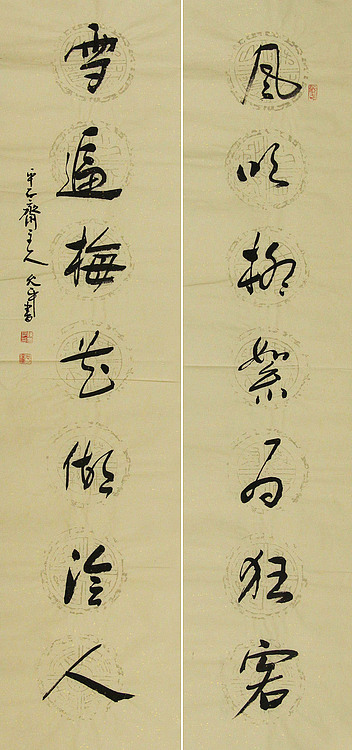 風吹柳絮为狂客
雪逼梅花做冷人
齋主人 書